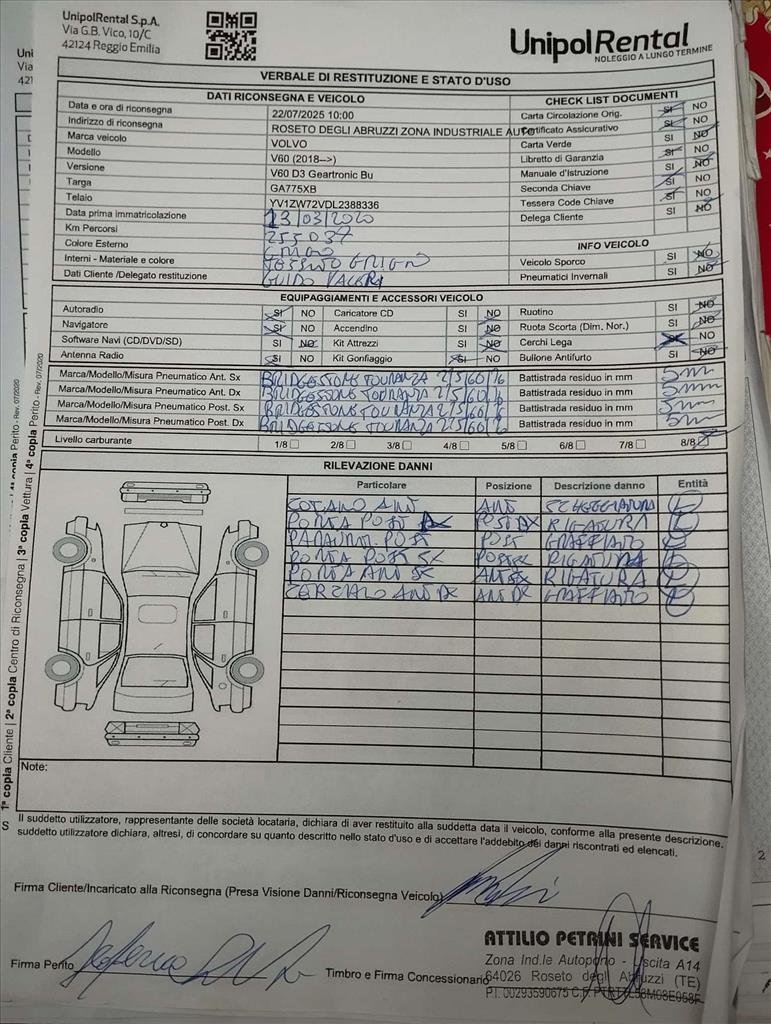 UnipolRental S.p.A.
Via G.B. Vico, 10/C
42124 Reggio Emilia
UnipolRental
NOLEGGIO A LUNGO TERMINE
VERBALE DI RESTITUZIONE E STATO D'USO
DATI RICONSEGNA E VEICOLO
Data e ora di riconsegna 22/07/2025 10:00
Indirizzo di riconsegna ROSETO DEGLI ABRUZZI ZONA INDUSTRIALE AUTO
Marca veicolo VOLVO
Modello V60 (2018-->)
Versione V60 D3 Geartronic Bu
Targa GA775XB
Telaio YV1ZW72VDL2388336
Data prima immatricolazione 23/03/2020
Km Percorsi 255037
Colore Esterno
Interni - Materiale e colore TESSUTO GRIGIO
Dati Cliente /Delegato restituzione GUIDO
CHECK LIST DOCUMENTI
Carta Circolazione Orig. SI NO
Certificato Assicurativo SI NO
Carta Verde SI NO
Libretto di Garanzia SI NO
Manuale d'Istruzione SI NO
Seconda Chiave SI NO
Tessera Code Chiave SI NO
Delega Cliente SI NO
INFO VEICOLO
Veicolo Sporco SI NO
Pneumatici Invernali SI NO
EQUIPAGGIAMENTI E ACCESSORI VEICOLO
Autoradio SI NO Caricatore CD SI NO Ruotino SI NO
Navigatore SI NO Accendino SI NO Ruota Scorta (Dim. Nor.) SI NO
Software Navi (CD/DVD/SD) SI NO Kit Attrezzi SI NO Cerchi Lega NO
Antenna Radio SI NO Kit Gonfiaggio SI NO Bullone Antifurto SI NO
Marca/Modello/Misura Pneumatico Ant. Sx BRIDGESTONE TOURANZA 215/60/16 Battistrada residuo in mm 5mm
Marca/Modello/Misura Pneumatico Ant. Dx BRIDGESTONE TOURANZA 215/60/16 Battistrada residuo in mm 5mm
Marca/Modello/Misura Pneumatico Post. Sx BRIDGESTONE TOURANZA 215/60/16 Battistrada residuo in mm 5mm
Marca/Modello/Misura Pneumatico Post. Dx BRIDGESTONE TOURANZA 215/60/16 Battistrada residuo in mm 5mm
Livello carburante 1/8 2/8 3/8 4/8 5/8 6/8 7/8 8/8
RILEVAZIONE DANNI
Particolare Posizione Descrizione danno Entità
COFANO ANT ANT SCHEGGIATURA
PORTA POST DX POST DX RIGATURA
PARAURTI POST POST GRAFFIATO
PORTA POST SX POST SX RIGATURA
PORTA ANT SX ANT SX RIGATURA
CERCHIO ANT DX ANT DX GRAFFIATO
Note:
Il suddetto utilizzatore, rappresentante delle società locataria, dichiara di aver restituito alla suddetta data il veicolo, conforme alla presente descrizione.
suddetto utilizzatore dichiara, altresì, di concordare su quanto descritto nello stato d'uso e di accettare l'addebito dei danni riscontrati ed elencati.
Firma Cliente/Incaricato alla Riconsegna (Presa Visione Danni/Riconsegna Veicolo)
Firma Perito
Timbro e Firma Concessionario
ATTILIO PETRINI SERVICE
Zona Ind.le Autoporto - Uscita A14
64026 Roseto degli Abruzzi (TE)
P.I. 00293590675 C.F.
1ª copia Cliente | 2ª copia Centro di Riconsegna | 3ª copia Vettura | 4ª copia Perito - Rev. 07/2020